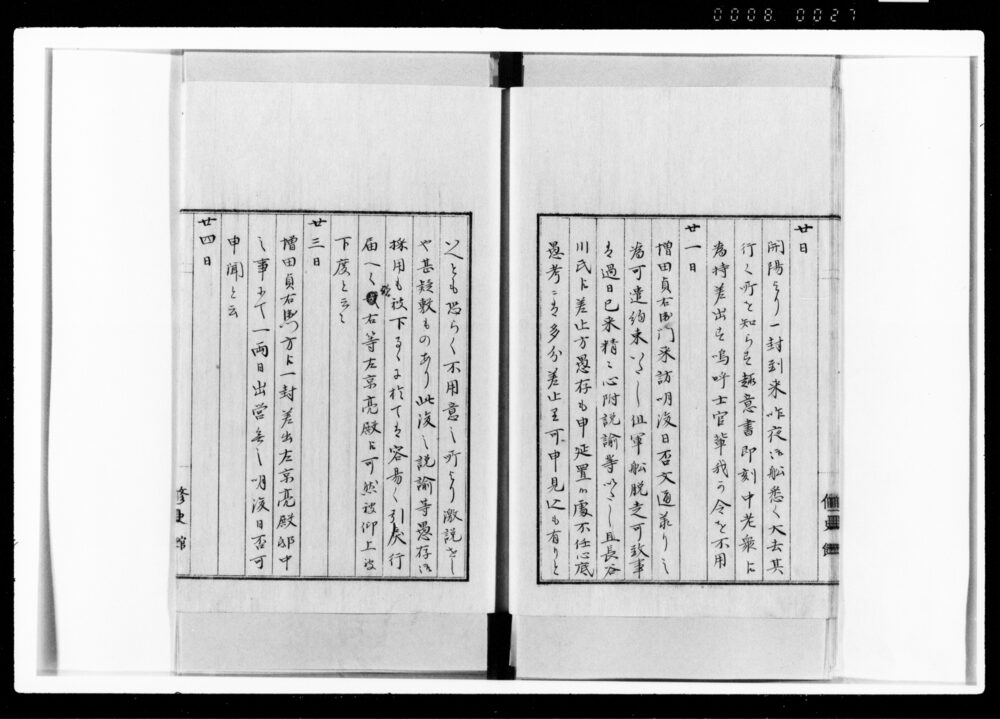 0008 0027
廿日
開陽より一封到来昨夜御船悉く大去其
行く所を知らす趣意書即刻中老衆に
為持差出す嗚呼士官輩我の令を不用
廿一日
増田貞右衛門来訪明後日否文通前りし
為可遣約束いたし但軍船脱走可致事
は過日已来精々心附説諭等いたし且長谷
川氏に差止方愚存も申延置候處不任心底
愚考には多分差止メ可申見込も有りと
いへとも恐らく不用意之所より激説せし
や甚疑敷ものあり此後之説諭等愚存御
採用も被下候に於ては容易く引戻行
届へく候右等左京亮殿に可然被仰上被
下度と云々
廿三日
増田貞右衛門方に一封差出左京亮殿邸中
之事にて一両日出営無し明後日否可
申聞と云
廿四日
修史館